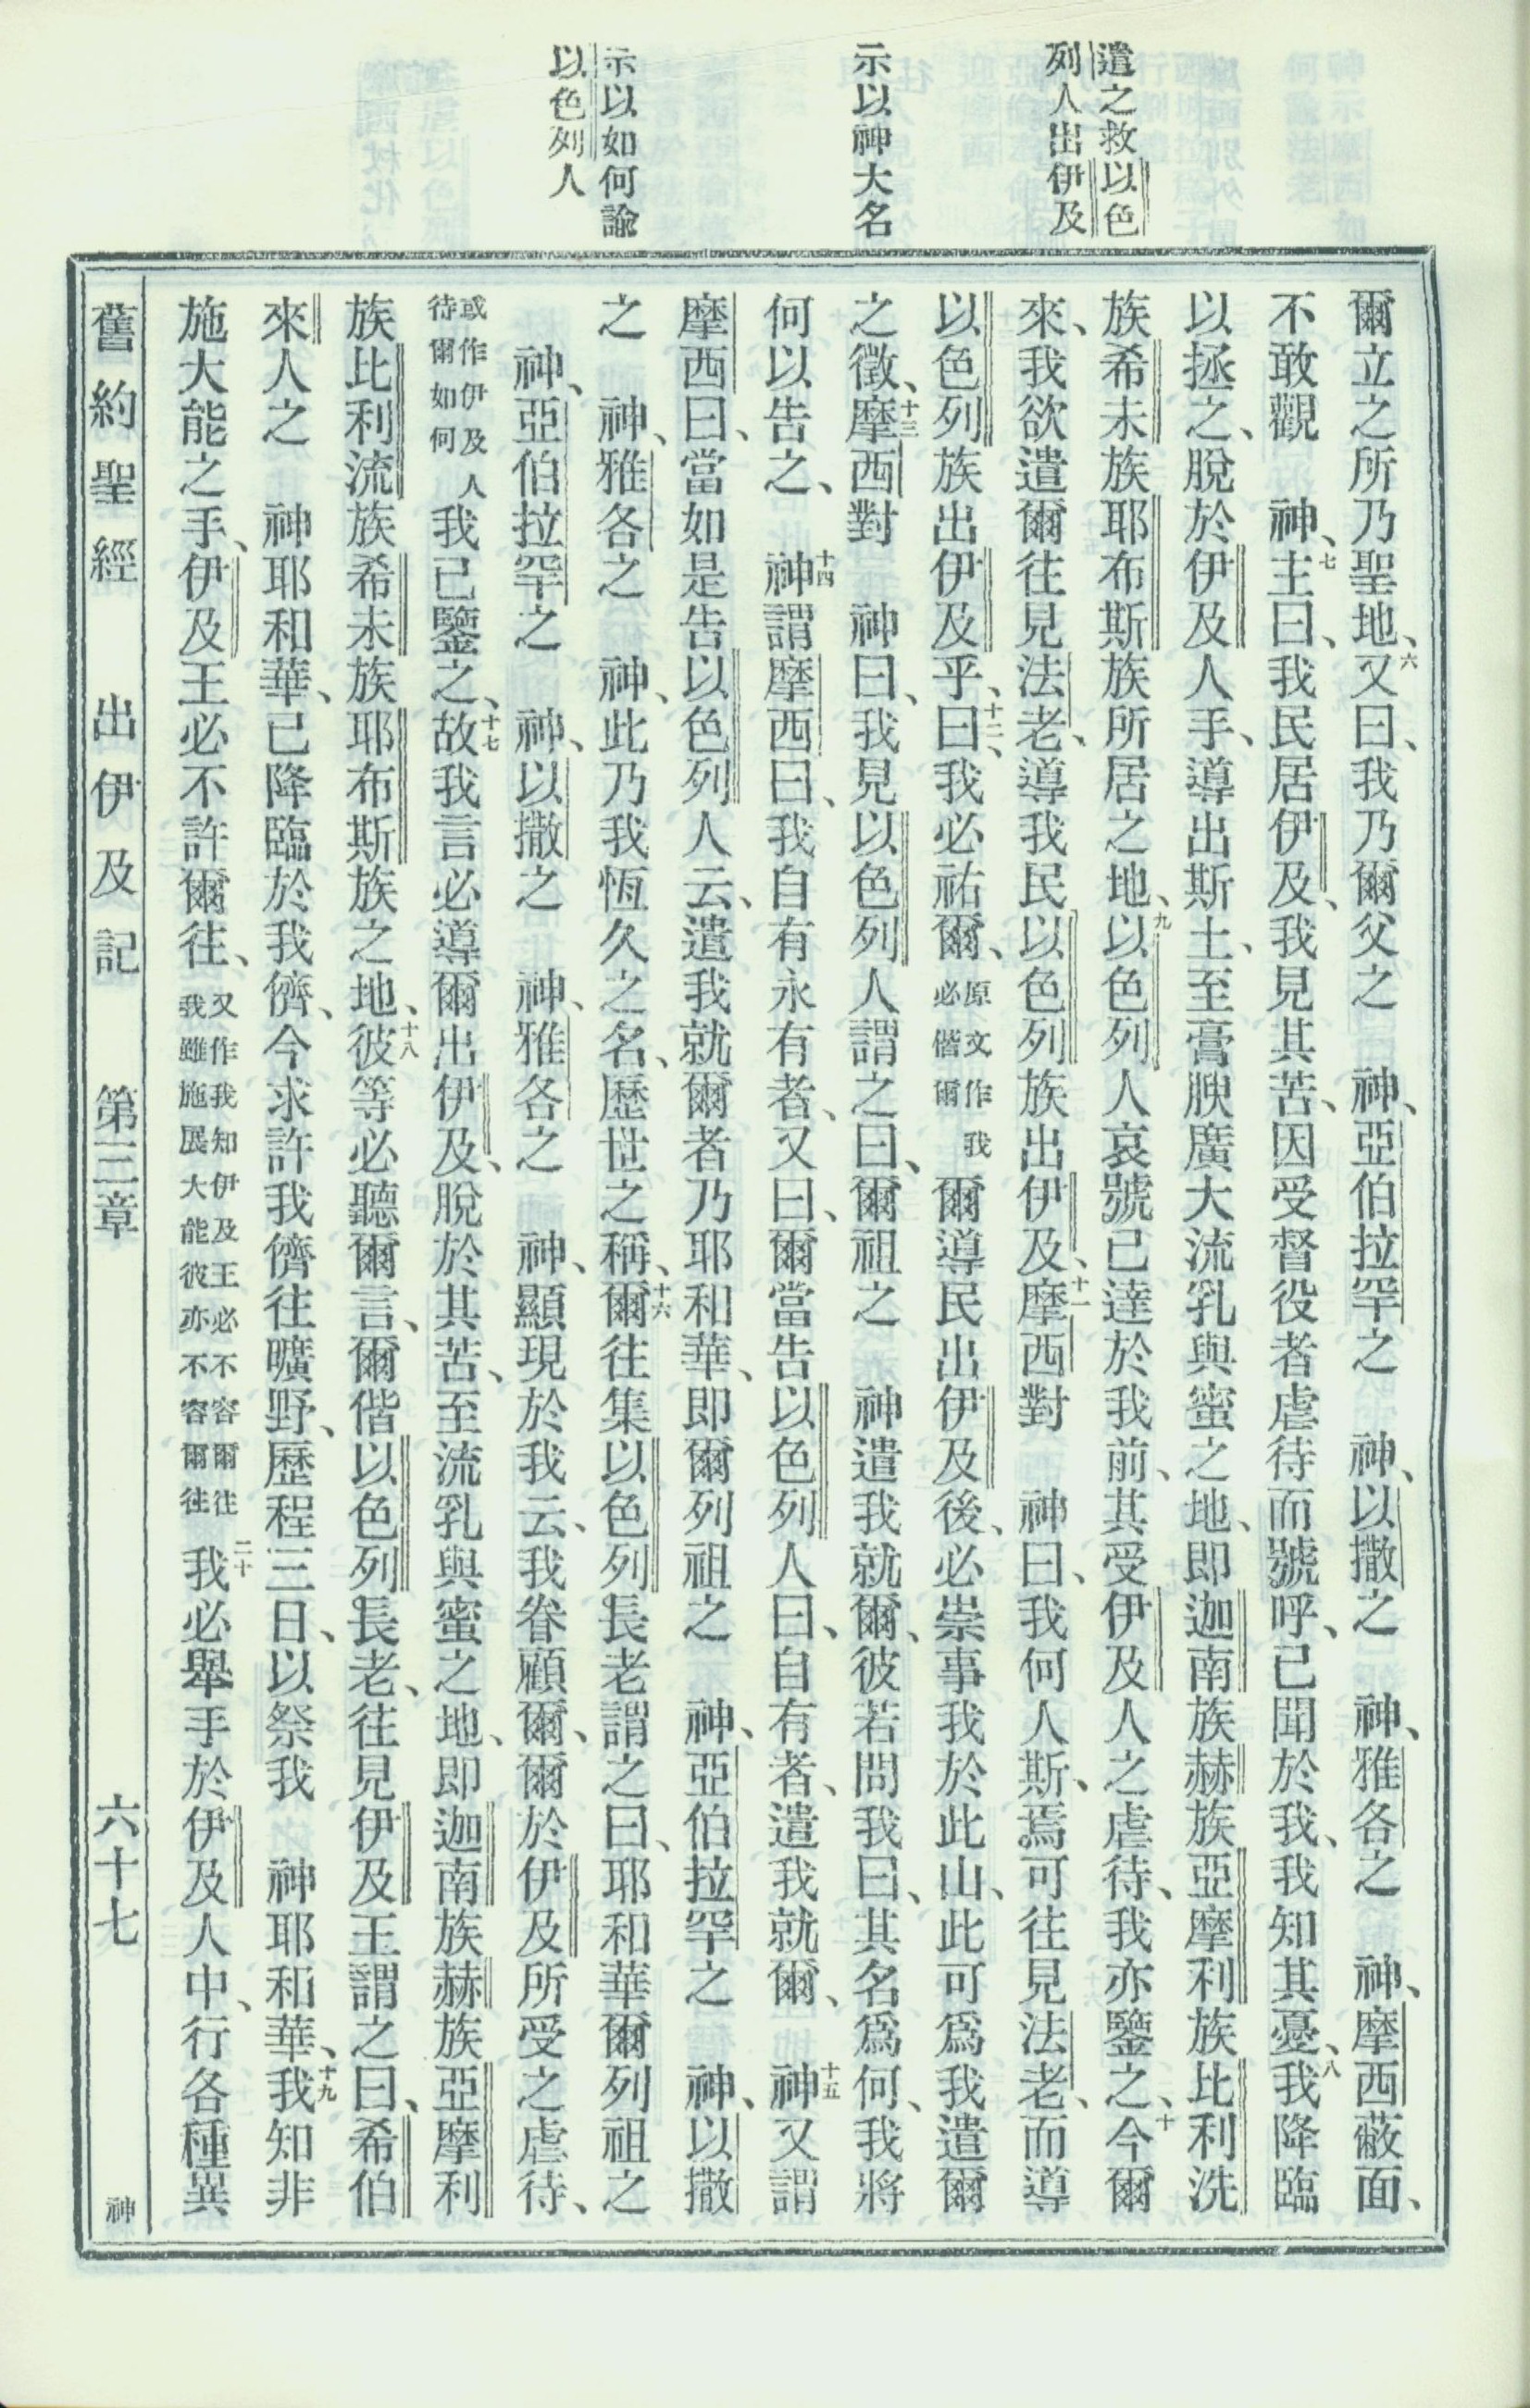 遣之救以色
列人出伊及
示以神大名
示以如何諭
以色列人
爾立之所乃聖地、六又曰、我乃爾父之　神、亞伯拉罕之　神、以撒之　神、雅各之　神、摩西蔽面、
不敢觀　神、七主曰、我民居伊及、我見其苦、因受督役者虐待而號呼、已聞於我、我知其憂、八我降臨
以拯之、脫於伊及人手、導出斯土、至膏腴廣大流乳與蜜之地、即迦南族赫族亞摩利族比利洗
族希未族耶布斯族所居之地、九以色列人哀號已達於我前、其受伊及人之虐待、我亦鑒之、十今爾
來、我欲遣爾往見法老、導我民以色列族出伊及、十一摩西對　神曰、我何人斯、焉可往見法老、而導
以色列族出伊及乎、十二曰、我必祐爾、原文作我必偕爾爾導民出伊及後、必崇事我於此山、此可爲我遣爾
之徵、十三摩西對　神曰、我見以色列人謂之曰、爾祖之　神遣我就爾、彼若問我曰、其名爲何、我將
何以告之、十四神謂摩西曰、我自有永有者、又曰、爾當告以色列人曰、自有者、遣我就爾、十五神又謂
摩西曰、當如是告以色列人云、遣我就爾者乃耶和華、即爾列祖之　神、亞伯拉罕之　神、以撒
之　神、雅各之　神、此乃我恆久之名、歷世之稱、十六爾往集以色列長老謂之曰、耶和華爾列祖之
神、亞伯拉罕之　神、以撒之　神、雅各之　神、顯現於我云、我眷顧爾、爾於伊及所受之虐待、
或作伊及人待爾如何我已鑒之、十七故我言必導爾出伊及、脫於其苦、至流乳與蜜之地、即迦南族赫族亞摩利
族比利流族希未族耶布斯族之地、十八彼等必聽爾言、爾偕以色列長老、往見伊及王謂之曰、希伯
來人之　神耶和華、已降臨於我儕、今求許我儕往曠野、歷程三日、以祭我　神耶和華、十九我知非
施大能之手、伊及王必不許爾往、又作我知伊及王必不容爾往我雖施展大能彼亦不容爾往二十我必舉手於伊及人中、行各種異
舊約聖經　出伊及記　第三章　六十七　神